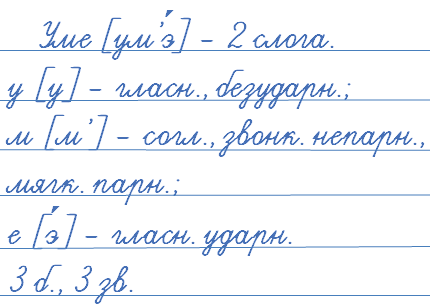 Уме [ум’э́] – 2 слога.
у [у] – гласн., безударн.;
м [м’] – согл., звонк. непарн.,
мягк. парн.;
е [э́] – гласн. ударн.
3 б., 3 зв.